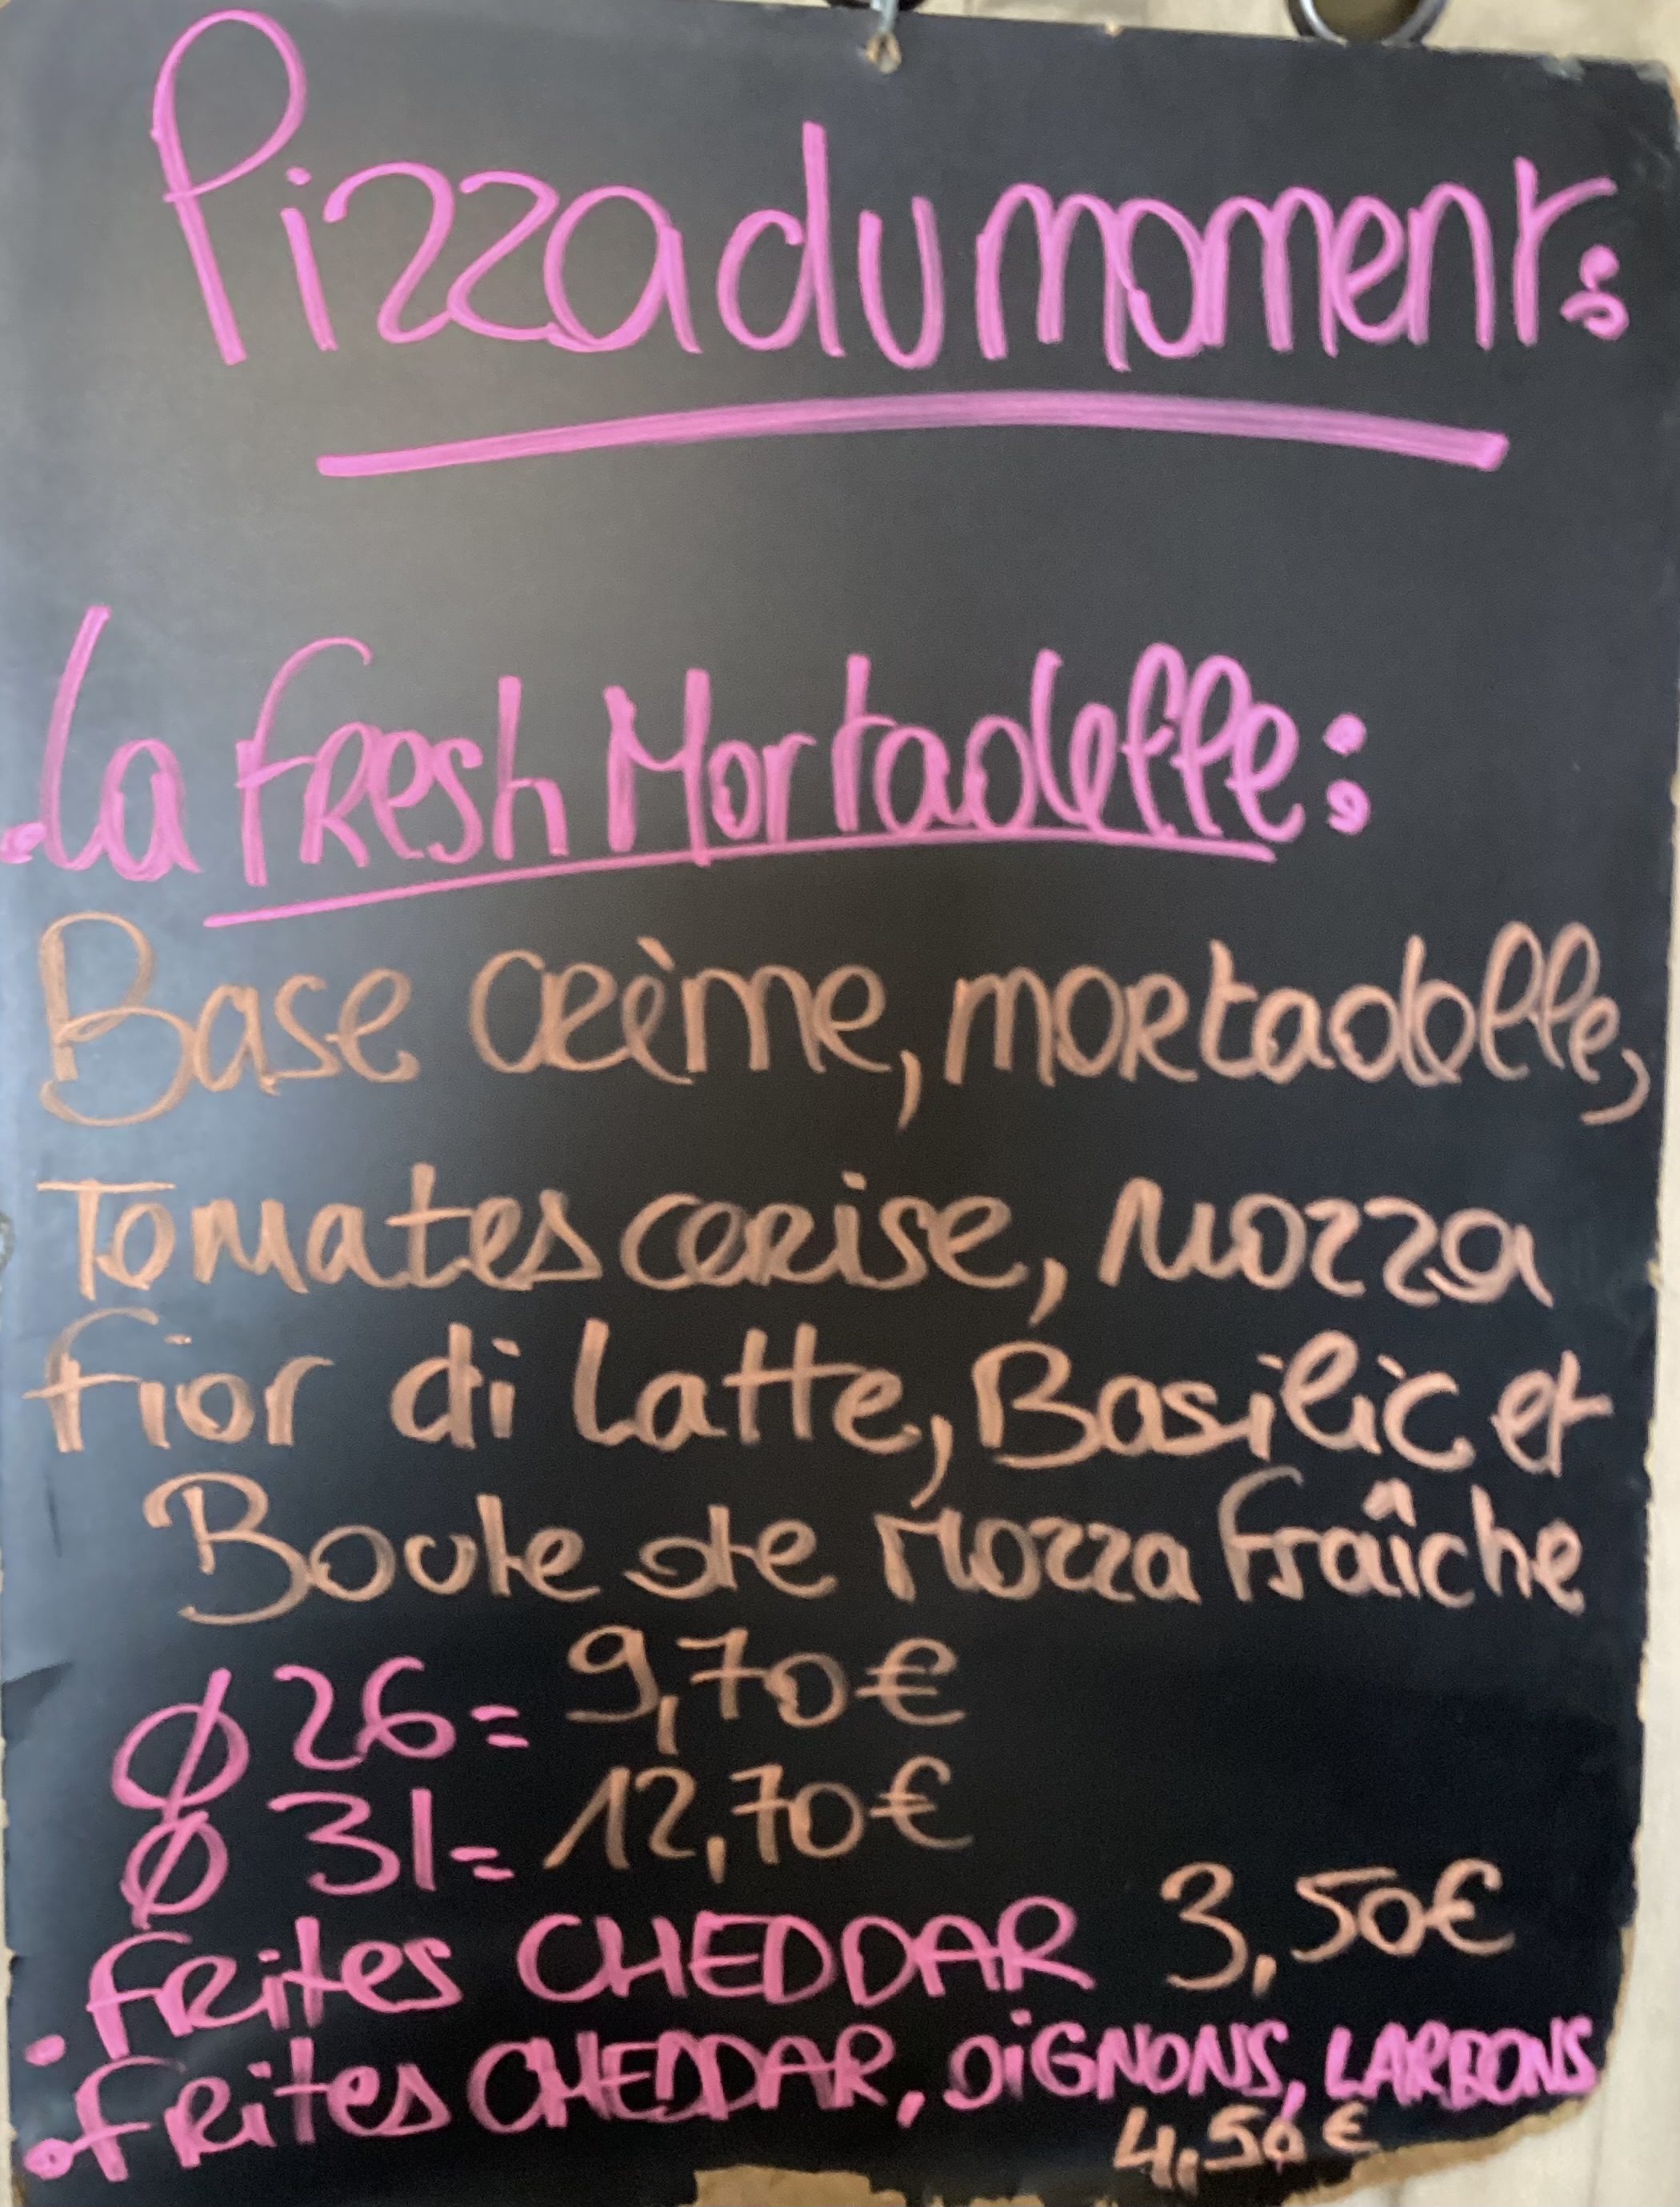 Pizza du moment :
. La Fresh Mortadelle :
Base crème, mortadelle,
Tomates cerise, Mozza
Fior di Latte, Basilic et
Boule de Mozza fraîche
Ø 26 = 9,70 €
Ø 31 = 12,70 €
. Frites CHEDDAR 3,50 €
. Frites CHEDDAR, OiGNONS, LARDONS
4,50 €